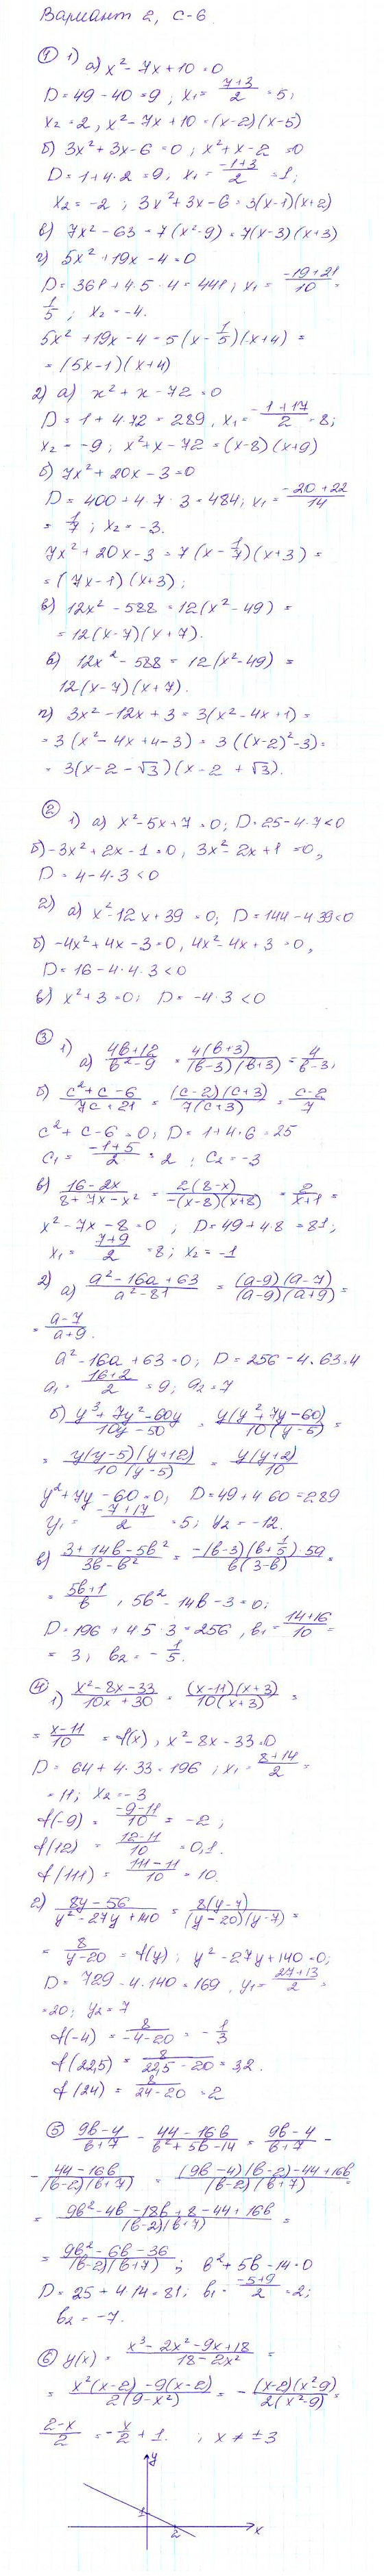 Вариант 2, С-6.
① 1) а) x² - 7x + 10 = 0
D = 49 - 40 = 9; x₁ = (7+3)/2 = 5;
x₂ = 2, x² - 7x + 10 = (x-2)(x-5)
б) 3x² + 3x - 6 = 0; x² + x - 2 = 0
D = 1 + 4·2 = 9; x₁ = (-1+3)/2 = 1;
x₂ = -2; 3x² + 3x - 6 = 3(x-1)(x+2)
в) 7x² - 63 = 7(x²-9) = 7(x-3)(x+3)
г) 5x² + 19x - 4 = 0
D = 361 + 4·5·4 = 441; x₁ = (-19+21)/10 =
1/5; x₂ = -4.
5x² + 19x - 4 = 5(x - 1/5)(x+4) =
= (5x-1)(x+4)
2) а) x² + x - 72 = 0
D = 1 + 4·72 = 289, x₁ = (-1+17)/2 = 8;
x₂ = -9; x² + x - 72 = (x-8)(x+9)
б) 7x² + 20x - 3 = 0
D = 400 + 4·7·3 = 484; x₁ = (-20+22)/14
= 1/7; x₂ = -3.
7x² + 20x - 3 = 7(x - 1/7)(x+3) =
= (7x-1)(x+3);
в) 12x² - 588 = 12(x² - 49) =
= 12(x-7)(x+7).
в) 12x² - 588 = 12(x²-49) =
12(x-7)(x+7).
г) 3x² - 12x + 3 = 3(x² - 4x + 1) =
= 3(x² - 4x + 4 - 3) = 3((x-2)² - 3) =
= 3(x - 2 - √3)(x - 2 + √3).
② 1) а) x² - 5x + 7 = 0; D = 25 - 4·7 < 0
б) -3x² + 2x - 1 = 0, 3x² - 2x + 1 = 0,
D = 4 - 4·3 < 0
2) а) x² - 12x + 39 = 0; D = 144 - 4·39 < 0
б) -4x² + 4x - 3 = 0, 4x² - 4x + 3 = 0,
D = 16 - 4·4·3 < 0
в) x² + 3 = 0; D = -4·3 < 0
③ 1) а) (4b+12)/(b²-9) = 4(b+3)/((b-3)(b+3)) = 4/(b-3);
б) (c²+c-6)/(7c+21) = (c-2)(c+3)/(7(c+3)) = (c-2)/7
c² + c - 6 = 0; D = 1 + 4·6 = 25
c₁ = (-1+5)/2 = 2; c₂ = -3
в) (16-2x)/(8+7x-x²) = 2(8-x)/(-(x-8)(x+8)) = 2/(x+1) =
x² - 7x - 8 = 0; D = 49 + 4·8 = 81;
x₁ = (7+9)/2 = 8; x₂ = -1
2) а) (a²-16a+63)/(a²-81) = (a-9)(a-7)/((a-9)(a+9)) =
= (a-7)/(a+9).
a² - 16a + 63 = 0; D = 256 - 4·63 = 4
a₁ = (16+2)/2 = 9; a₂ = 7
б) (y³+7y²-60y)/(10y-50) = y(y²+7y-60)/(10(y-5)) =
= y(y-5)(y+12)/(10(y-5)) = y(y+2)/10
y² + 7y - 60 = 0; D = 49 + 4·60 = 289
y₁ = (-7+17)/2 = 5; y₂ = -12.
в) (3+14b-5b²)/(3b-b²) = -(b-3)(b+1/5)·59/(b(3-b)) =
= (5b+1)/b, 5b² - 14b - 3 = 0;
D = 196 + 4·5·3 = 256, b₁ = (14+16)/10 =
= 3; b₂ = -1/5.
④ 1) (x²-8x-33)/(10x+30) = (x-11)(x+3)/(10(x+3)) =
= (x-11)/10 = f(x), x² - 8x - 33 = 0
D = 64 + 4·33 = 196; x₁ = (8+14)/2 =
= 11; x₂ = -3
f(-9) = (-9-11)/10 = -2;
f(12) = (12-11)/10 = 0,1.
f(111) = (111-11)/10 = 10.
2) (8y-56)/(y²-27y+140) = 8(y-7)/((y-20)(y-7)) =
= 8/(y-20) = f(y); y² - 27y + 140 = 0;
D = 729 - 4·140 = 169, y₁ = (27+13)/2 =
= 20; y₂ = 7
f(-4) = 8/(-4-20) = -1/3
f(22,5) = 8/(22,5-20) = 3,2.
f(24) = 8/(24-20) = 2
⑤ (9b-4)/(b+7) - (44-16b)/(b²+5b-14) = (9b-4)/(b+7) -
- (44-16b)/((b-2)(b+7)) = ((9b-4)(b-2)-44+16b)/((b-2)(b+7)) =
= (9b²-4b-18b+8-44+16b)/((b-2)(b+7)) =
= (9b²-6b-36)/((b-2)(b+7)); b² + 5b - 14 = 0
D = 25 + 4·14 = 81; b₁ = (-5+9)/2 = 2;
b₂ = -7.
⑥ y(x) = (x³-2x²-9x+18)/(18-2x²) =
= (x²(x-2)-9(x-2))/(2(9-x²)) = -(x-2)(x²-9)/(2(x²-9)) =
(2-x)/2 = -x/2 + 1.; x ≠ ±3
y
1
2
x